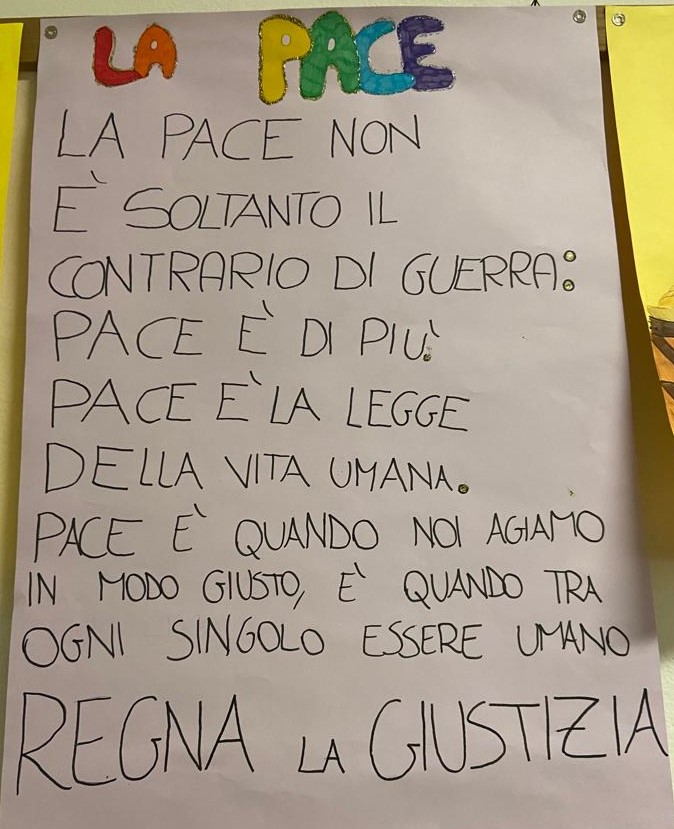 LA PACE
LA PACE NON
È SOLTANTO IL
CONTRARIO DI GUERRA:
PACE È DI PIÙ.
PACE È LA LEGGE
DELLA VITA UMANA.
PACE È QUANDO NOI AGIAMO
IN MODO GIUSTO, È QUANDO TRA
OGNI SINGOLO ESSERE UMANO
REGNA LA GIUSTIZIA